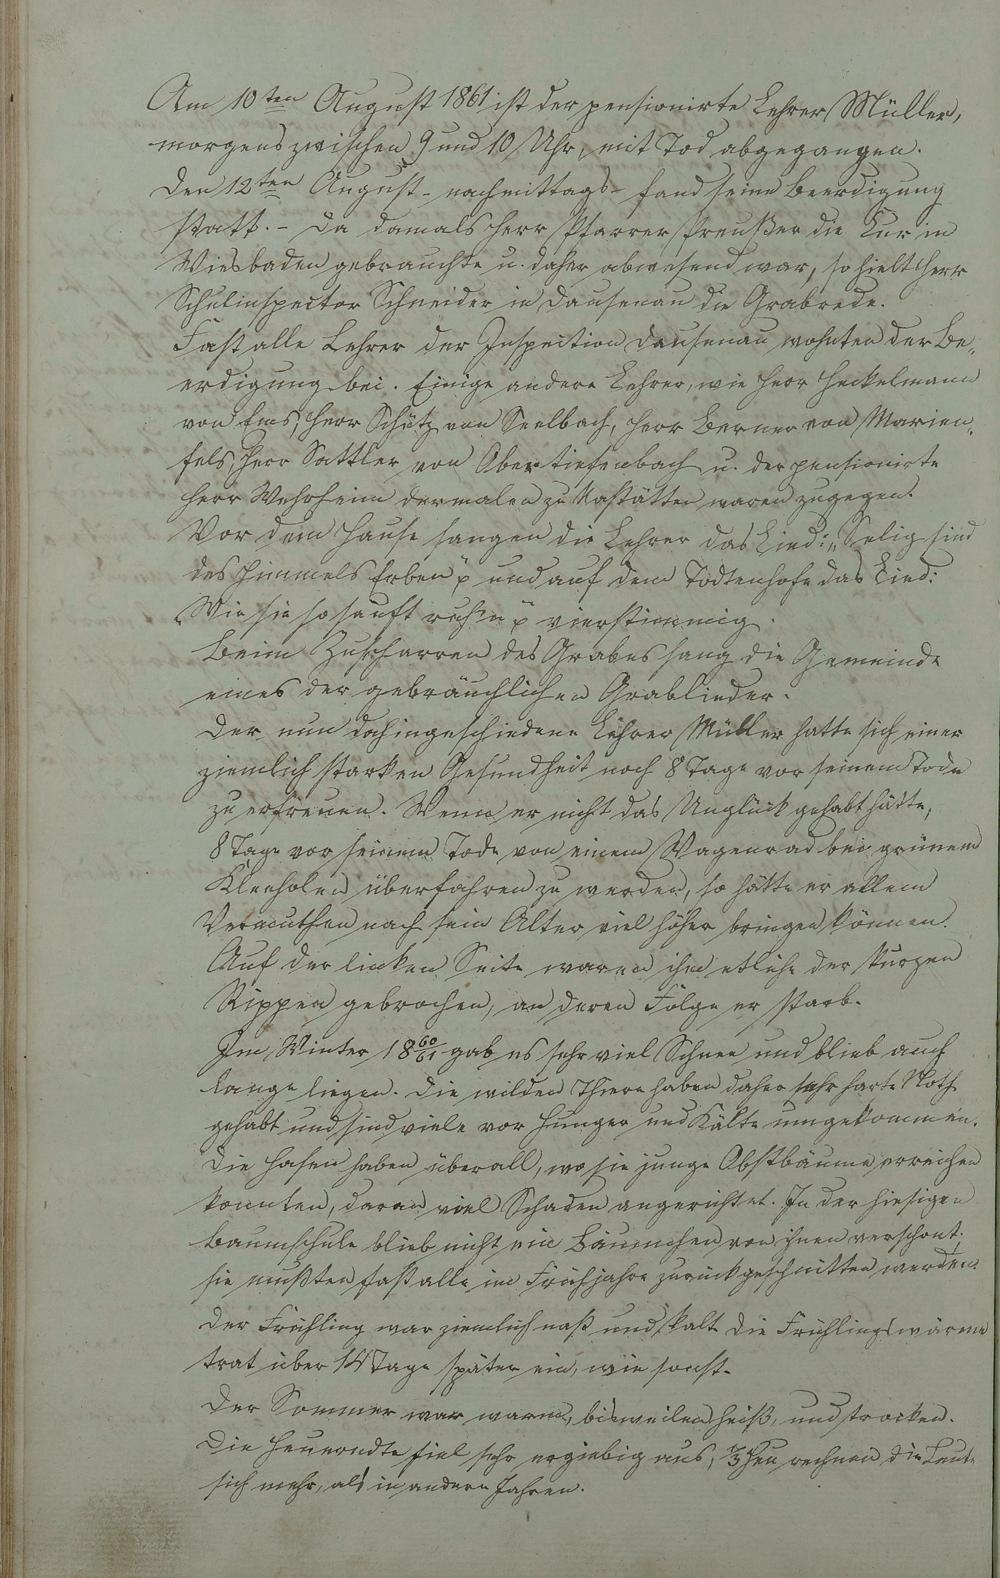 Am 10ten August 1861 ist der pensionirte Lehrer Müller,
morgens zwischen 9 und 10 Uhr, mit Tod abgegangen.
Den 12ten August - nachmittags - fand seine Beerdigung
statt. - Da damals Herr Pfarrer Preußer die Kur in
Wiesbaden gebrauchte u. daher abwesend war, so hielt Herr
Schulinspector Schneider in Dausenau die Grabrede.
Fast alle Lehrer der Inspection Dausenau wohnten der Be„
erdigung bei. Einige andere Lehrer, wie Herr Heckelmann
von Ems, Herr Schütz von Seelbach, Herr Berner von Marien„
fels, Herr Sattler von Obertiefenbach u. der pensionirte
Herr Wehrheim dermalen zu Nastätten waren zugegen.
Vor dem Hause sangen die Lehrer das Lied: „Selig sind
des Himmels Erben" p und auf dem Todtenhofe das Lied:
„Wie sie so sanft ruh'n" p vierstimmig.
Beim Zuscharren des Grabes sang die Gemeinde
eines der gebräuchlichen Grablieder.
Der nun dahingeschiedene Lehrer Müller hatte sich einer
ziemlich starken Gesundheit noch 8 Tage vor seinem Tode
zu erfreuen. Wenn er nicht das Unglück gehabt hätte,
8 Tage vor seinem Tode von einem Wagenrad bei grünem
Kleeholen überfahren zu werden, so hätte er allem
Vermuthen nach sein Alter viel höher bringen können.
Auf der linken Seite waren ihm etliche der kurzen
Rippen gebrochen, an deren Folge er starb.
Im Winter 18 60/61 gab es sehr viel Schnee und blieb auch
lange liegen. Die wilden Thiere haben daher sehr harte Noth
gehabt und sind viele vor Hunger und Kälte umgekommen.
Die Hasen haben überall, wo sie junge Obstbäume erreichen
konnten, daran viel Schaden angerichtet. In der hiesigen
Baumschule blieb nicht ein Bäumchen von ihnen verschont.
sie mußten fast alle im Frühjahre zurückgeschnitten werden.
Der Frühling war ziemlich naß und kalt. Die Frühlingswärme
trat über 14 Tage später ein, wie sonst.
Der Sommer war warm, bisweilen heiß, und trocken.
Die Heuerndte fiel sehr ergiebig aus, Heu rechnen die Leute
sich mehr, als in andern Jahren.